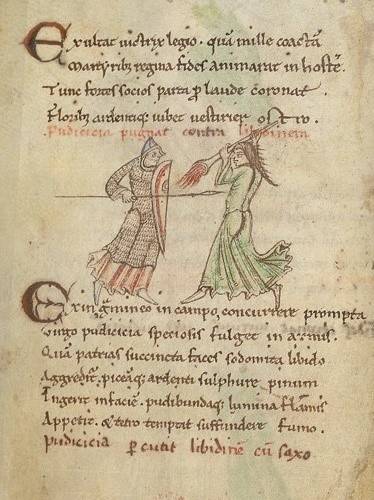 Exultat uictrix legio. quā mille coactā
Martyrib; regina fides animarat in hostē.
Tunc fortes socios parta ꝑ laude coronat.
Florib; ardentiq; iubet uestirier ostro.
Pudicicia pugnat contra libidinem
Exin gͣmineo in campo, concurrere prompta
Uirgo pudicicia speciosis fulget in armis.
Quā patrias succincta faces sodomita libido
Aggredit᷑, piceāq; ardenti sulphure pinum
Ingerit infaciē. pudibundaq; lumina flāmis
Appetit. & tetro temptat suffundere fumo.
Pudicicia ꝑcutit libidinē cū saxo